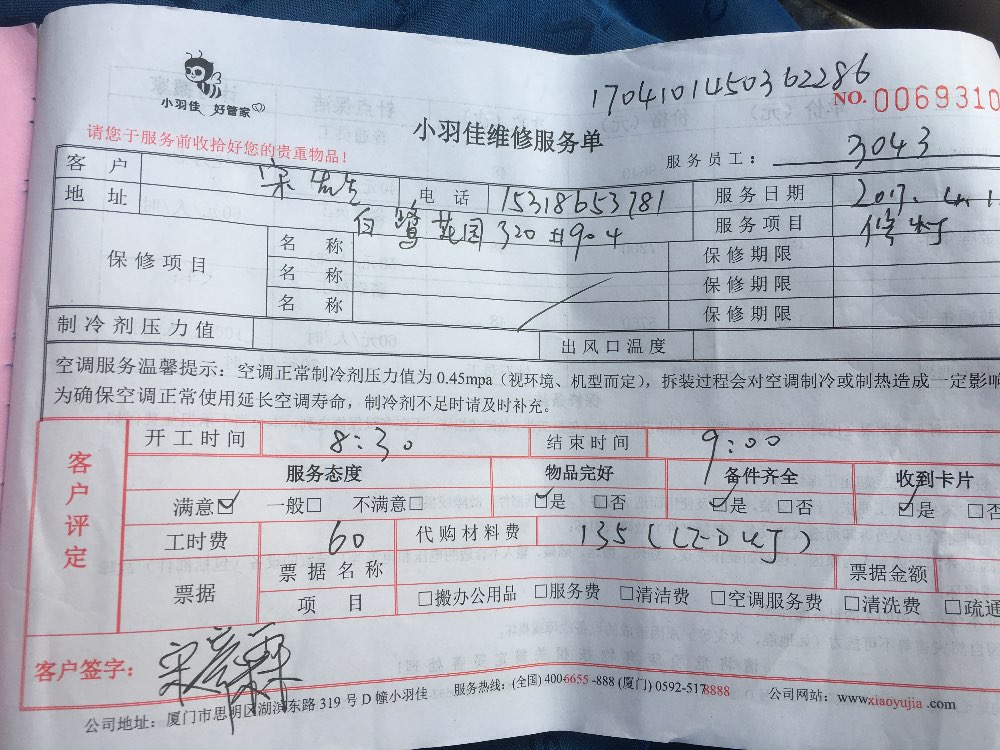 17041014503622286
小羽佳 好管家
NO. 0069310
小羽佳维修服务单
请您于服务前收拾好您的贵重物品！
服务员工： 3043
客 户 宋先生 电 话 15318653781 服务日期 2017.
地 址 白鹭花园320#904 服务项目 修灯
保修项目 名 称 保修期限
名 称 保修期限
名 称 保修期限
制冷剂压力值 出风口温度
空调服务温馨提示：空调正常制冷剂压力值为 0.45mpa（视环境、机型而定），拆装过程会对空调制冷或制热造成一定影响
为确保空调正常使用延长空调寿命，制冷剂不足时请及时补充。
客户评定
开工时间 8:30 结束时间 9:00
服务态度 物品完好 备件齐全 收到卡片
满意☑ 一般□ 不满意□ ☑是 □否 ☑是 □否 ☑是 □否
工时费 60 代购材料费 135（LED灯）
票据 票据名称 票据金额
项 目 □搬办公用品 □服务费 □清洁费 □空调服务费 □清洗费 □疏通
客户签字： 宋彦霖
公司地址：厦门市思明区湖滨东路 319 号 D 幢小羽佳 服务热线：(全国) 400-6655-888 (厦门) 0592-5178888 公司网站：www.xiaoyujia.com